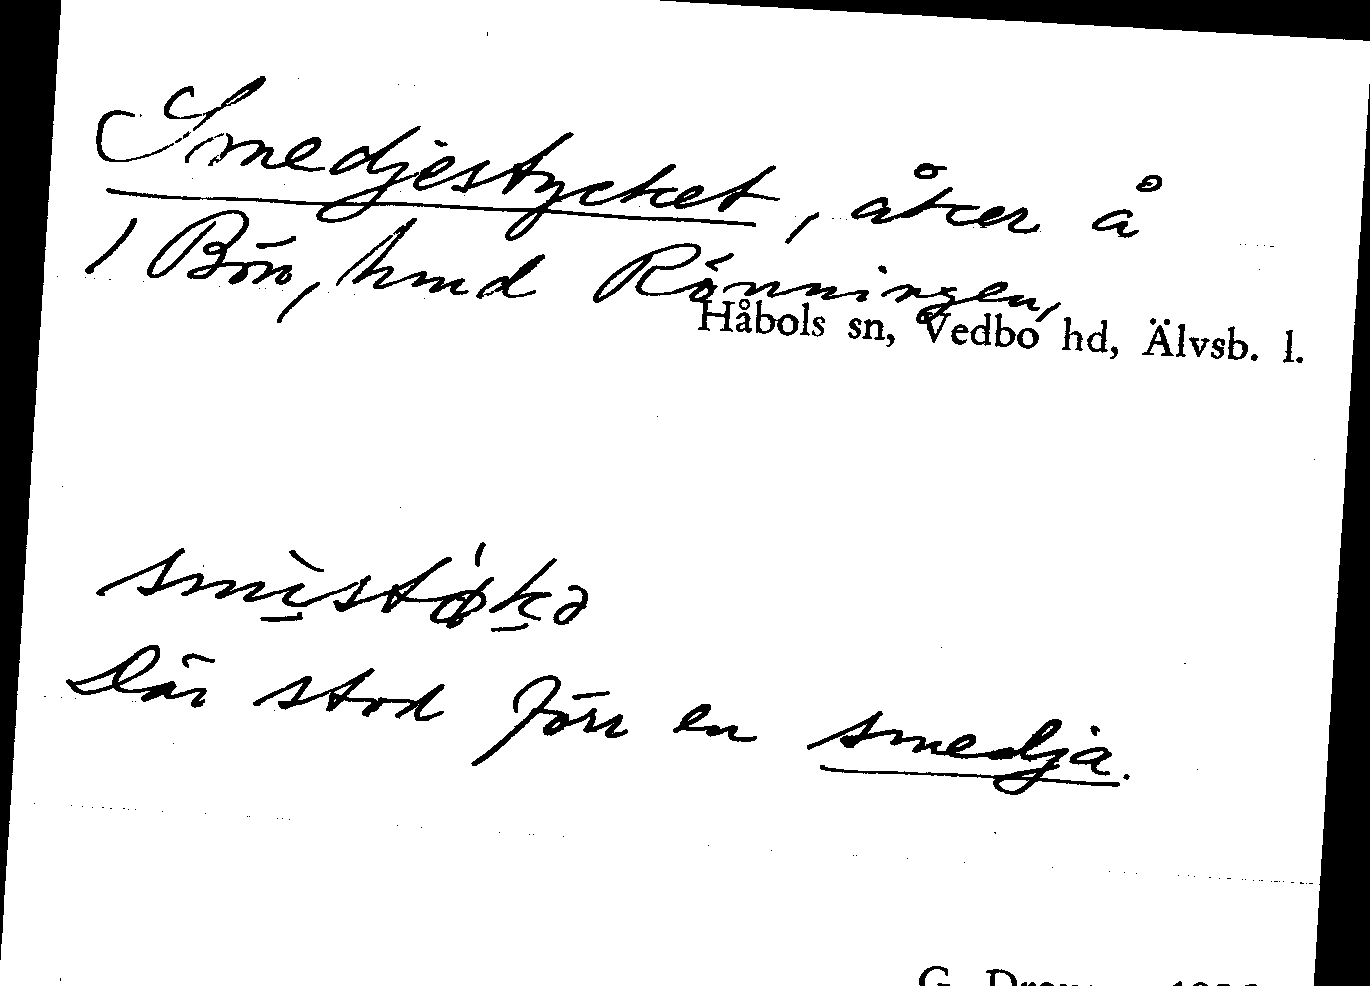 Smedjestycket, åker å
1 Bön, hmd Rönningen,
Håbols sn, Vedbo hd, Älvsb. l.
smìstǿkə
Där stod förr en smedja.
G.